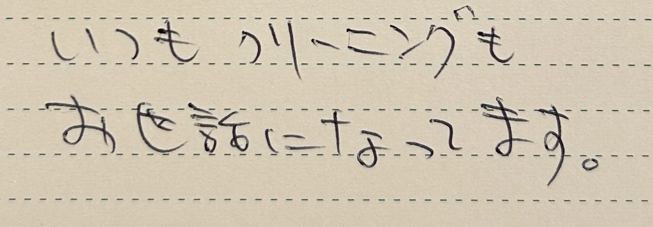 いつもクリーニングも
お世話になってます。